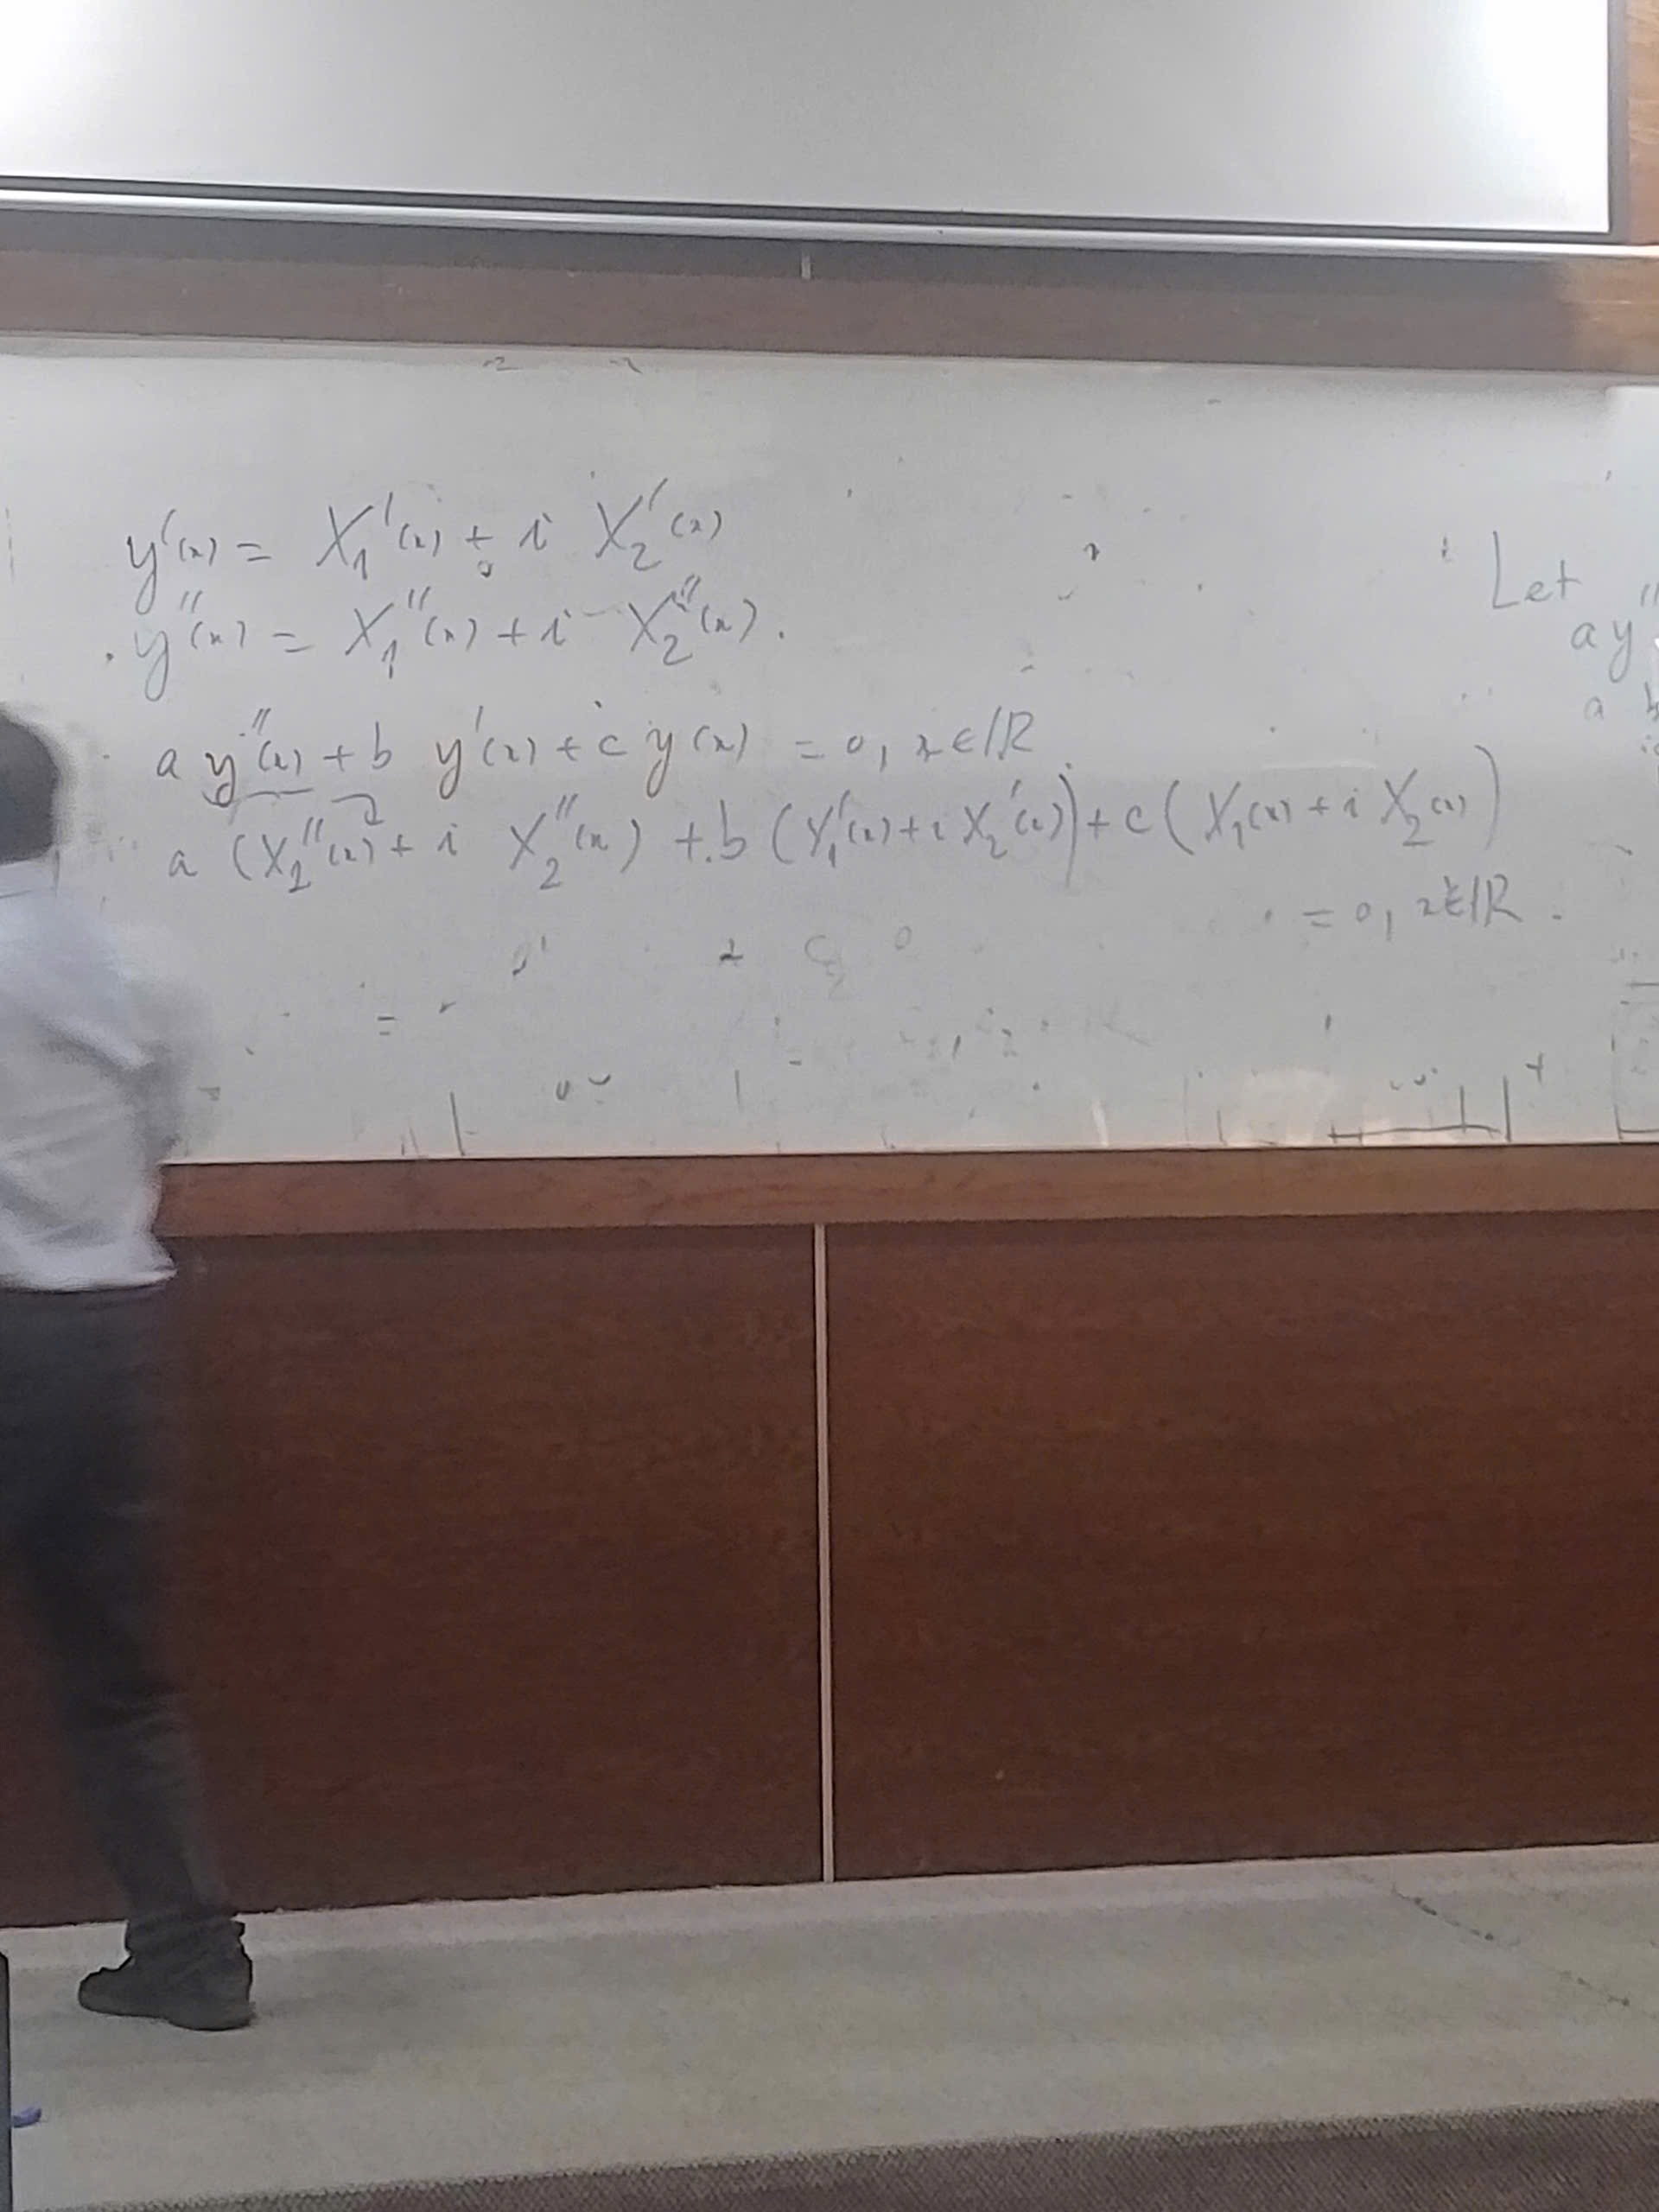 y'(x) = X₁'(x) + i X₂'(x)
y''(x) = X₁''(x) + i X₂''(x).
a y''(x) + b y'(x) + c y(x) = 0, x ∈ ℝ
a (X₂''(x) + i X₂''(x)) + b (X₁'(x) + i X₂'(x)) + c (X₁(x) + i X₂(x))
= 0, x ∈ ℝ.
Let
a y''
a b